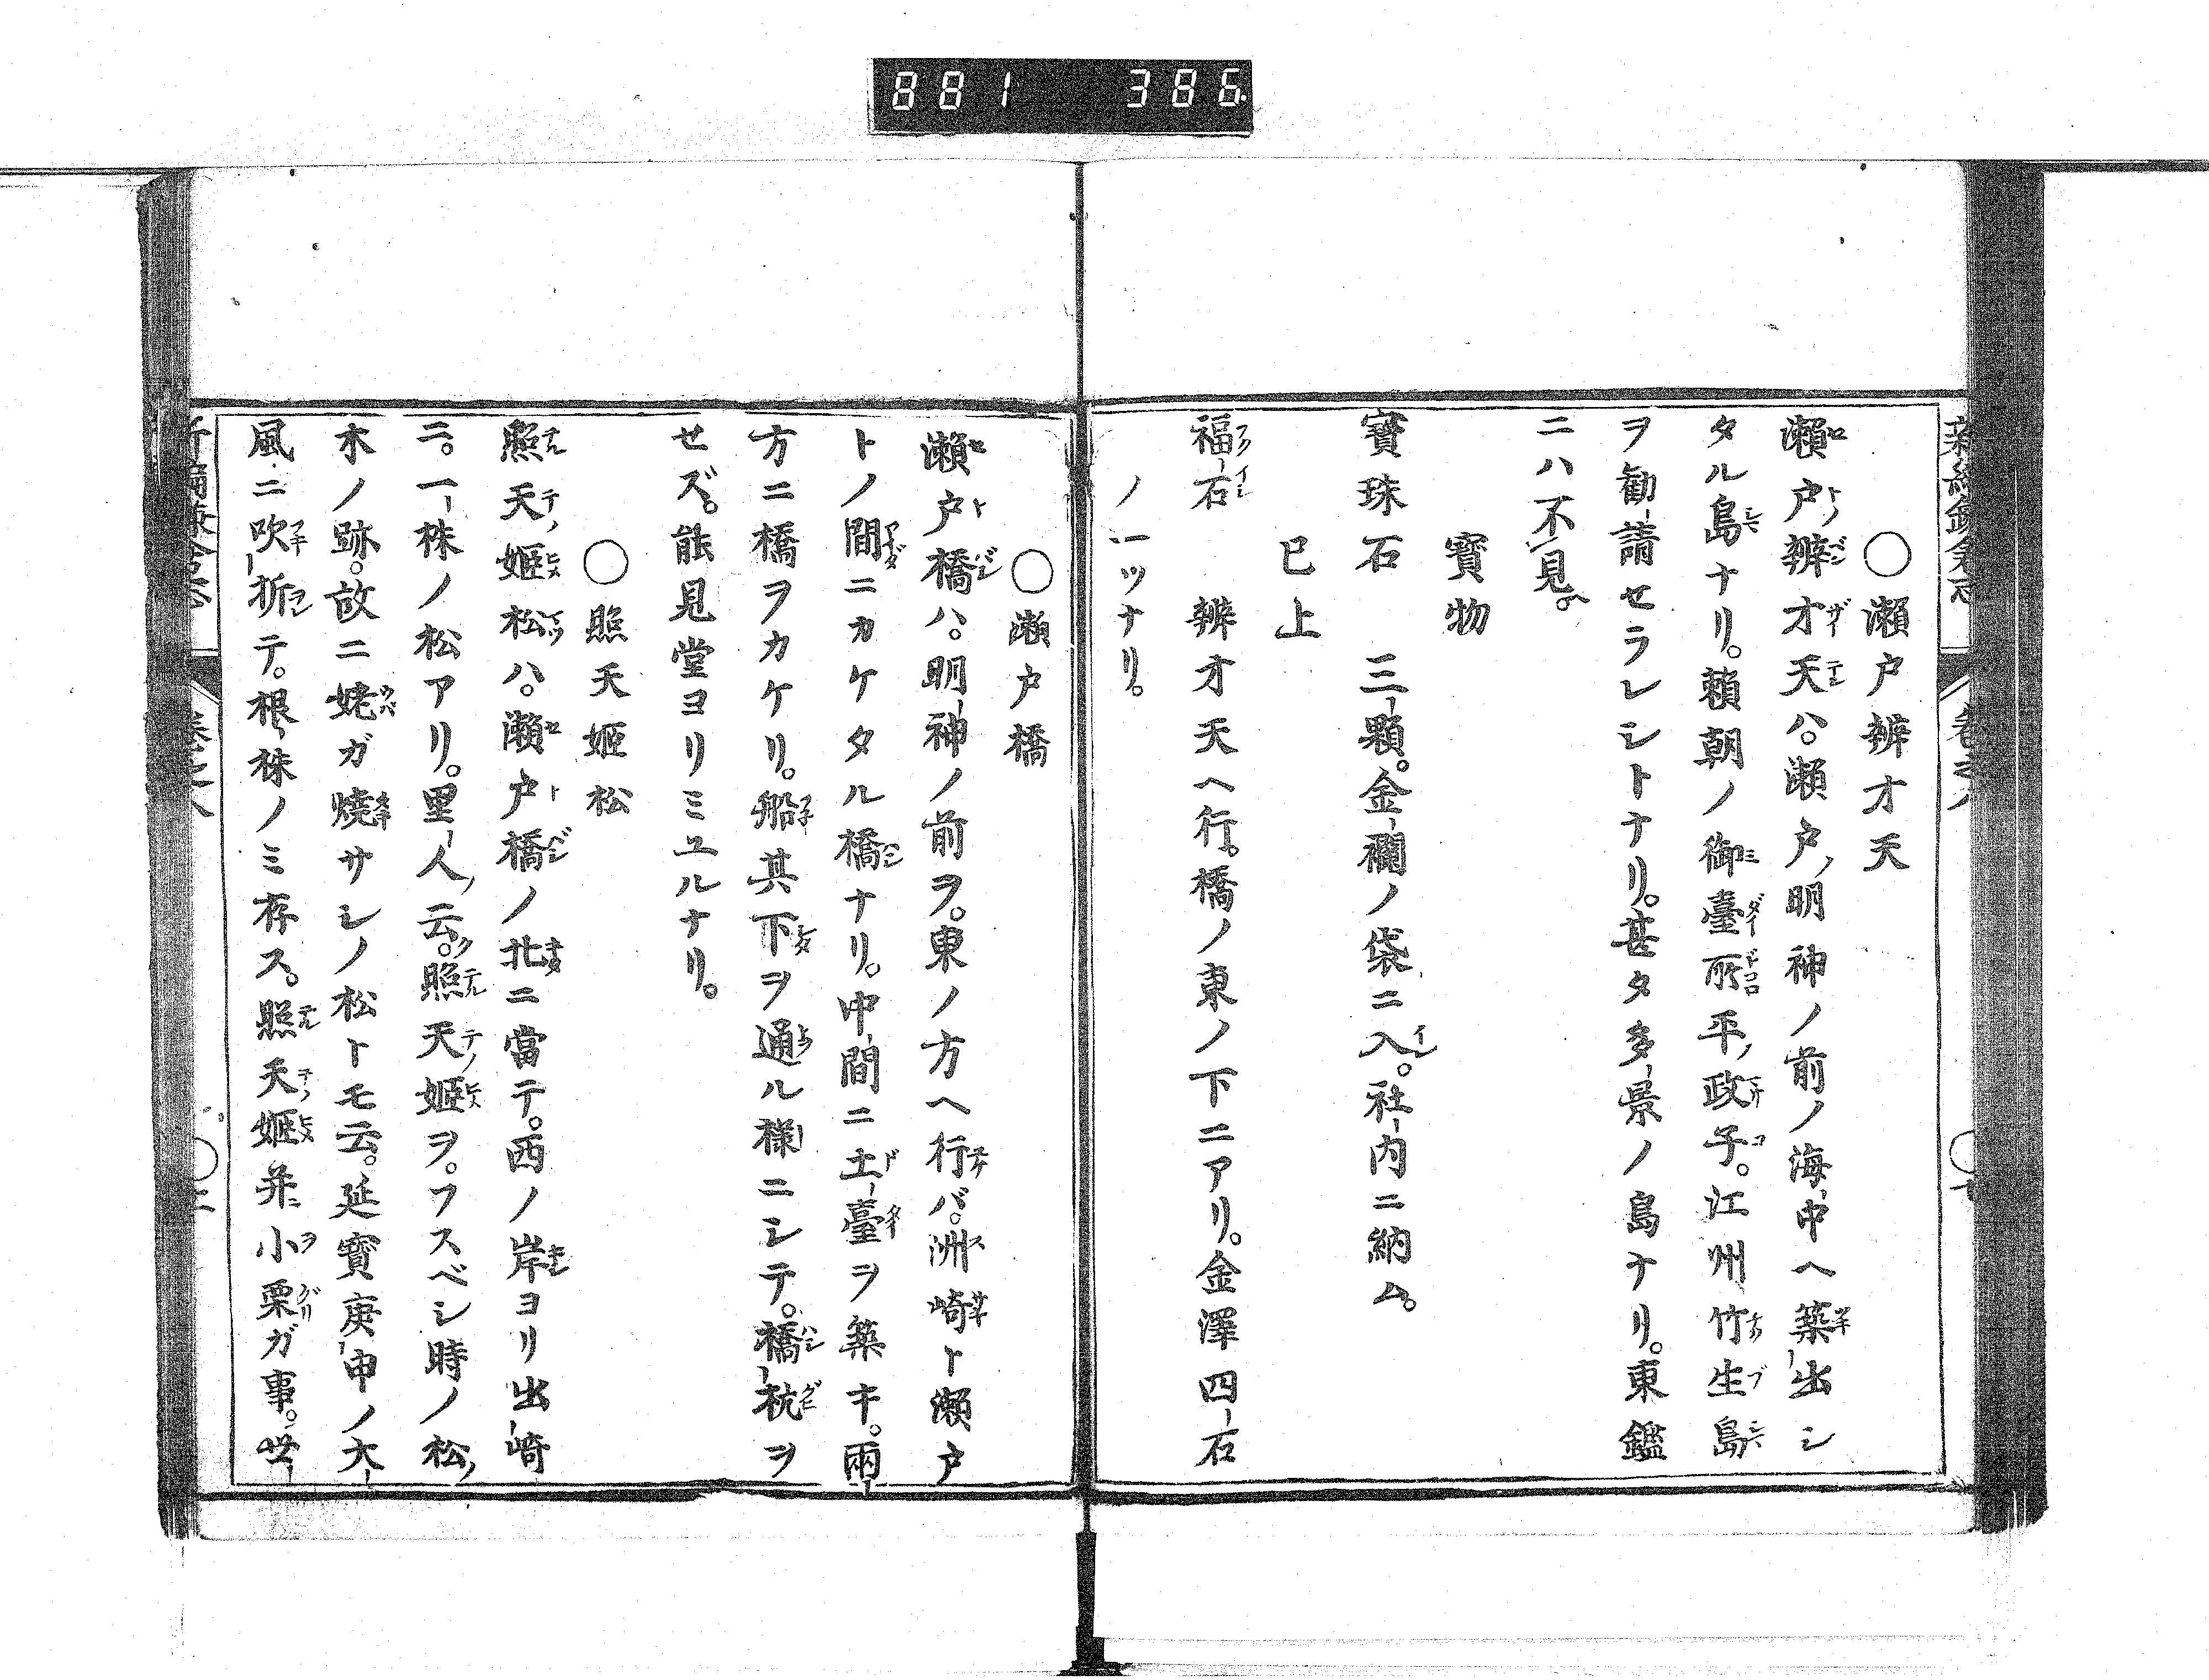 881 386
〇瀬戸辨才天
瀬戸ノ辨才天ハ。瀬戸ノ明神ノ前ノ海中ヘ築出シ
タル島ナリ。頼朝ノ御臺所平ノ政子。江州竹生島
ヲ勸請セラレシトナリ。甚タ多景ノ島ナリ。東鑑
ニハ不見。
寶物
寶珠石 三顆。金襴ノ袋ニ入。社内ニ納ム。
已上
福石 辨才天ヘ行。橋ノ東ノ下ニアリ。金澤四石
ノ一ツナリ。
〇瀬戸橋
瀬戸橋ハ。明神ノ前ヲ。東ノ方ヘ行バ。洲崎ト瀬戸
トノ間ニカケタル橋ナリ。中間ニ土臺ヲ築キ。兩
方ニ橋ヲカケリ。船其下ヲ通ル様ニシテ。橋杭ヲ
セズ。能見堂ヨリミユルナリ。
〇照天姫松
照天姫松ハ。瀬戸橋ノ北ニ當テ。西ノ岸ヨリ出崎
ニ。一株ノ松アリ。里人ノ云ク。照天姫ヲ。フスベシ時ノ松ノ
木ノ跡。故ニ姥ガ燒サシノ松トモ云。延寶庚申ノ大
風ニ吹折テ。根株ノミ存ス。照天姫并ニ小栗ガ事。世